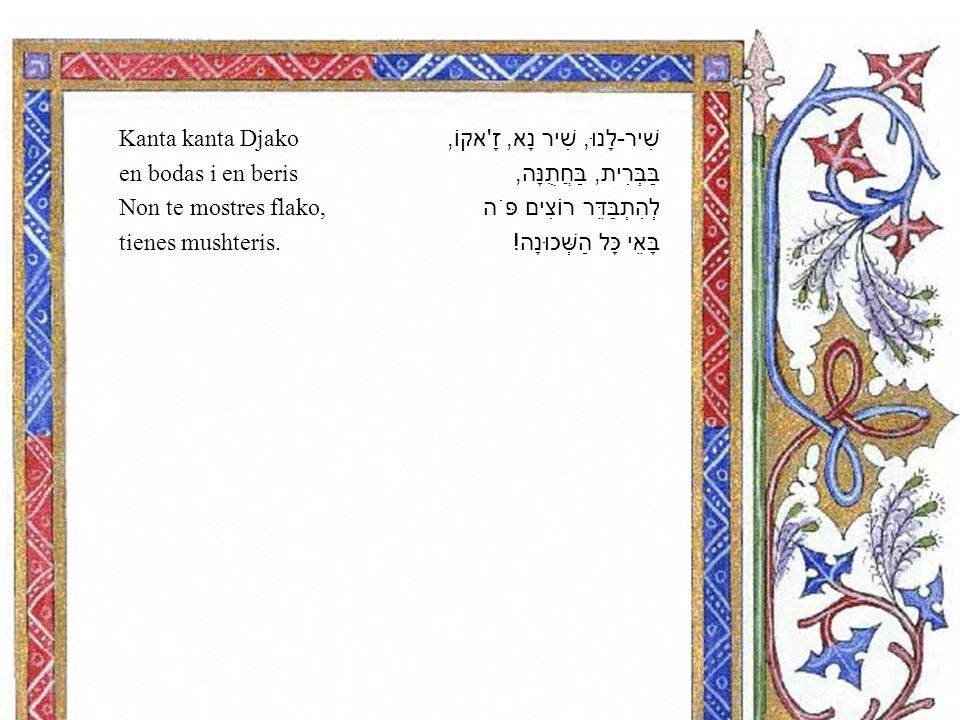 Kanta kanta Djako
en bodas i en beris
Non te mostres flako,
tienes mushteris.
שִׁיר-לָנוּ, שִׁיר נָא, זָ'אקוֹ,
בַּבְּרִית, בַּחֲתֻנָּה,
לְהִתְבַּדֵּר רוֹצִים פֹּה
בָּאֵי כָּל הַשְּׁכוּנָה!